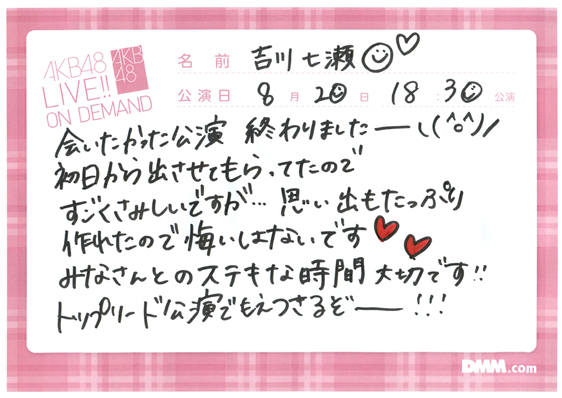 AKB48
LIVE!!
ON DEMAND
AKB
48
名前 吉川七瀬
公演日 8月20日 18:30公演
会いたかった公演 終わりましたー\(^o^)/
初日から出させてもらってたので
すごくさみしいですが… 思い出もたっぷり
作れたので悔いはないです
みなさんとのステキな時間 大切です!!
トップリード公演でもえつきるぞー!!!
DMM.com